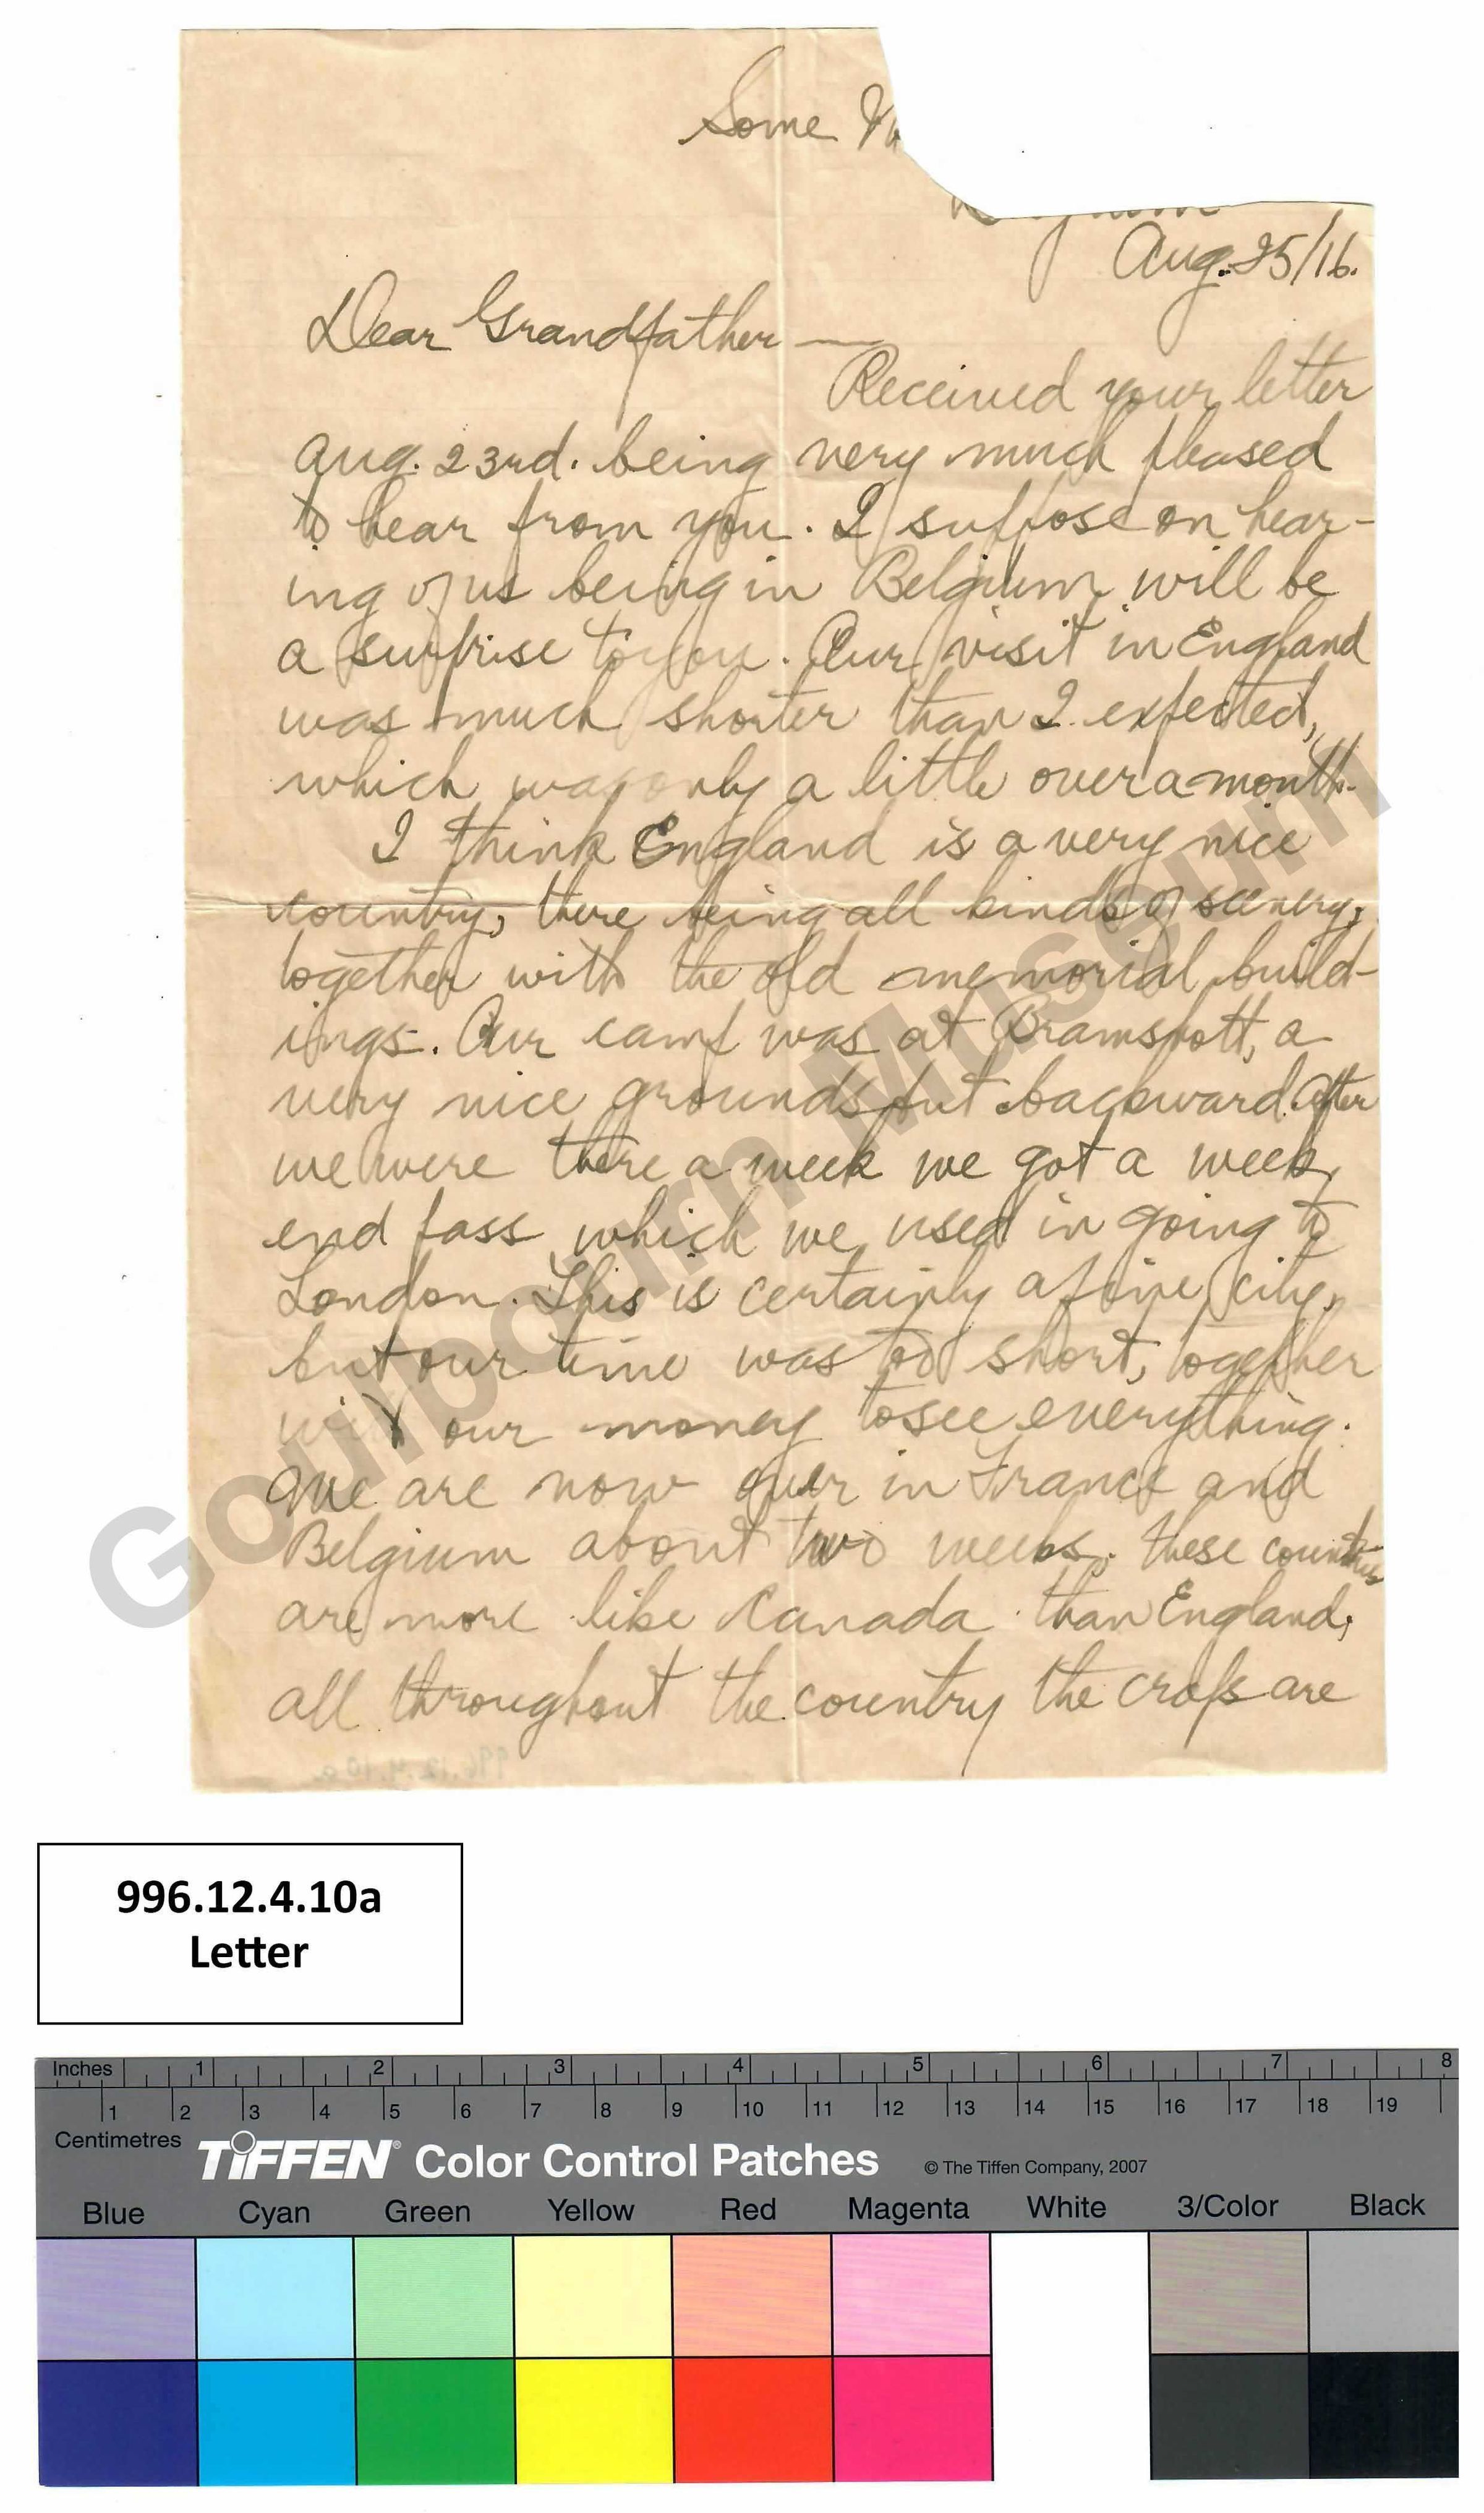 Some
Belgium
Aug. 25/16.
Dear Grandfather —
Received your letter
Aug. 23rd. being very much pleased
to hear from you. I suppose on hear-
ing of us being in Belgium will be
a surprise to you. Our visit in England
was much shorter than I expected,
which was only a little over a month.
I think England is a very nice
country, there being all kinds of scenery,
together with the old memorial build-
ings. Our camp was at Bramshott, a
very nice grounds but backward. After
we were there a week we got a week
end pass which we used in going to
London. This is certainly a fine city,
but our time was too short, together
with our money to see everything.
We are now over in France and
Belgium about two weeks. These countries
are more like Canada than England,
all throughout the country the crops are
996.12.4.10a
Goulbourn Museum
996.12.4.10a
Letter
Inches 1 2 3 4 5 6 7 8
1 2 3 4 5 6 7 8 9 10 11 12 13 14 15 16 17 18 19
Centimetres
TIFFEN® Color Control Patches © The Tiffen Company, 2007
Blue Cyan Green Yellow Red Magenta White 3/Color Black